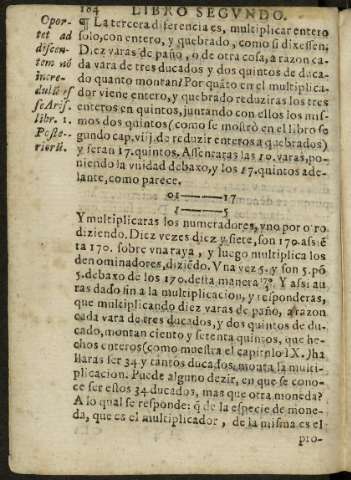 184 LIBRO SEGVNDO.
Opor-
tet ad
discen-
tem nō
incre-
dulū esse
Aris.
libr. 1.
Poste-
riorū.
¶ La tercera diferencia es, multiplicar entero
solo, con entero, y quebrado, como si dixessen,
Diez varas de paño, o de otra cosa, a razon ca-
da vara de tres ducados y dos quintos de duca-
do quanto montan? Por quāto en el multiplica-
dor viene entero, y quebrado reduziras los tres
enteros en quintos, juntando con ellos los mis-
mos dos quintos (como se mostrò en el libro se
gundo cap. viij. de reduzir enteros a quebrados)
y seran 17. quintos. Assentaras las 10. varas, po-
niendo la vnidad debaxo, y los 17. quintos ade-
lante, como parece.
01——17
1——5
Y multiplicaras los numeradores, vno por otro
diziendo. Diez vezes diez y siete, son 170. assiē
ta 170. sobre vna raya, y luego multiplica los
denominadores, diziēdo. Vna vez 5. y son 5. pō
5. debaxo de los 170. desta manera 170/5. Y assi au-
ras dado fin a la multiplicacion, y responderas,
que multiplicando diez varas de paño, a razon
cada vara de tres ducados, y dos quintos de du-
cado, montan ciento y setenta quintos, que he-
chos enteros (como muestra el capitulo IX.) ha
llaras ser 34 y tantos ducados, monta la multi-
plicacion. Puede alguno dezir, en que se cono-
ce ser estos 34 ducados, mas que otra moneda?
A lo qual se responde: q̄ de la especie de mone-
da, que es el multiplicador, de la misma es el
pro-